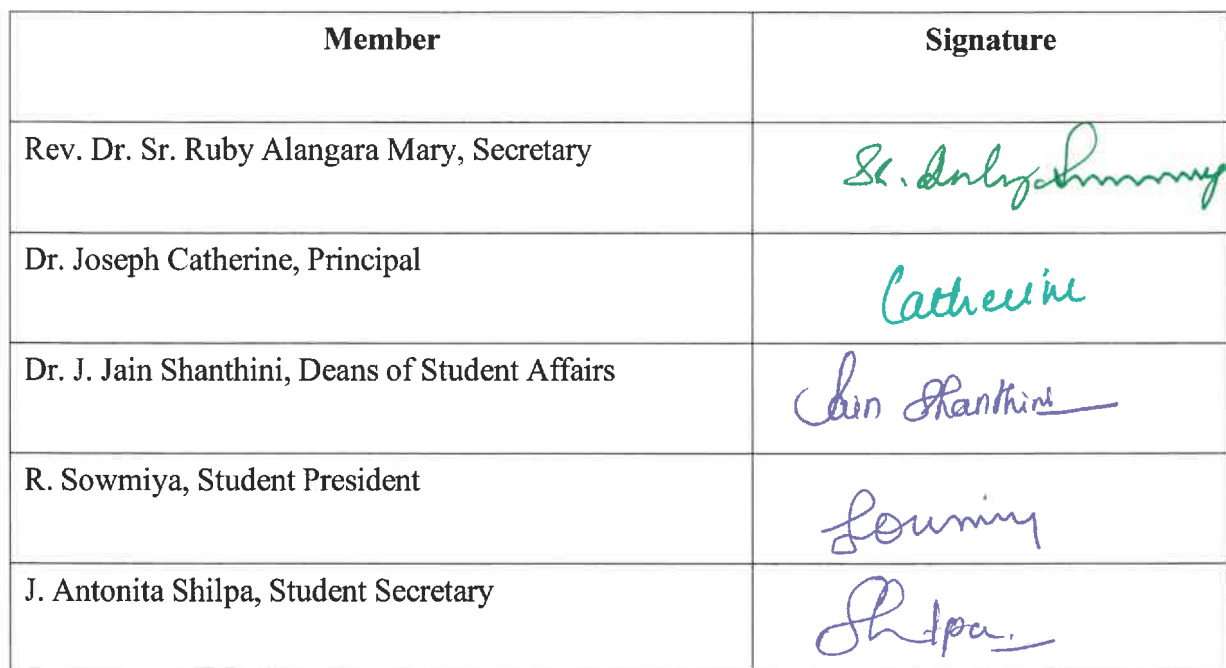 Member Signature
Rev. Dr. Sr. Ruby Alangara Mary, Secretary Sr. Ruby
Dr. Joseph Catherine, Principal Catherine
Dr. J. Jain Shanthini, Deans of Student Affairs Jain Shanthini
R. Sowmiya, Student President
J. Antonita Shilpa, Student Secretary Shilpa.